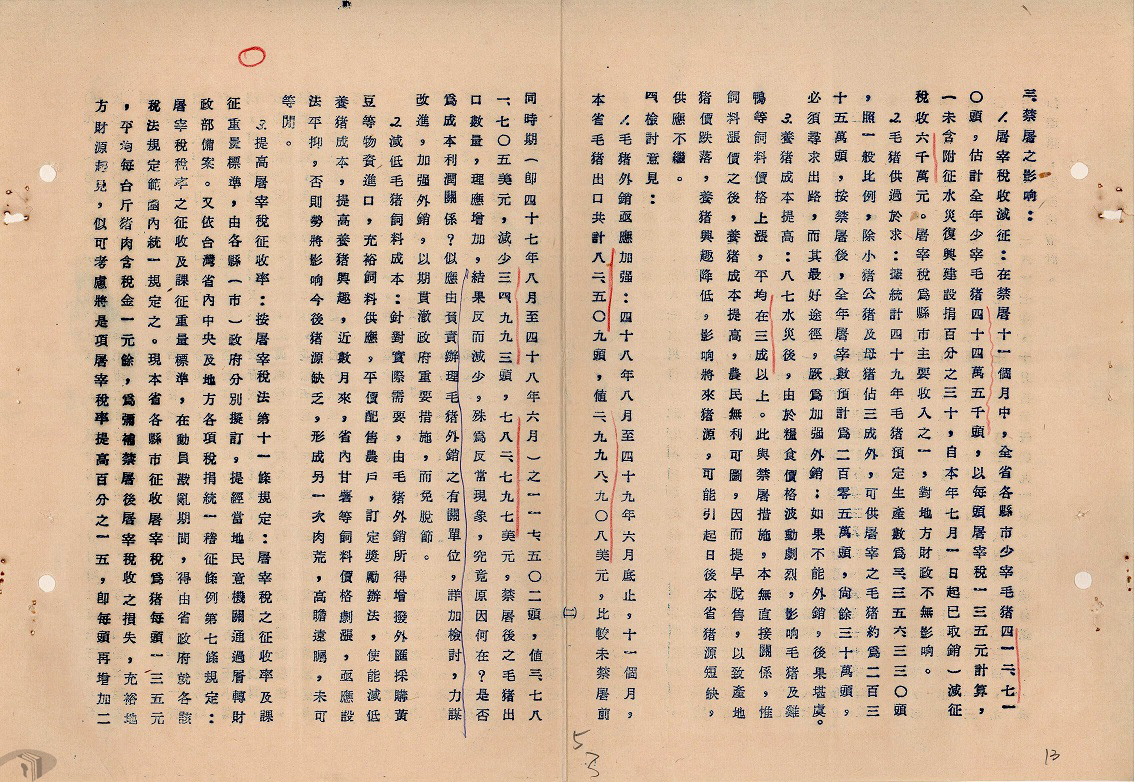 三、禁屠之影响：
1.屠宰稅收減征：在禁屠十一個月中，全省各縣市少宰毛猪四一二、七一
〇頭，估計全年少宰毛猪四十四萬五千頭，以每頭屠宰稅一三五元計算，
（未含附征水災復興建設捐百分之三十，自本年七月一日起已取銷）減征
稅收六千萬元。屠宰稅爲縣市主要收入之一，對地方財政不無影响。
2.毛猪供過於求：據統計四十九年毛猪預定生產數爲三、三五六、三三〇頭
，照一般比例，除小猪公猪及母猪佔三成外，可供屠宰之毛猪約爲二百三
十五萬頭，按禁屠後，全年屠宰數預計爲二百零五萬頭，尙餘三十萬頭，
必須尋求出路，而其最好途徑，厥爲加强外銷；如果不能外銷，後果堪虞。
3.養猪成本提高：八七水災後，由於糧食價格波動劇烈，影响毛猪及雞
鴨等飼料價格上漲，平均在三成以上。此與禁屠措施，本無直接關係，惟
飼料漲價之後，養猪成本提高，農民無利可圖，因而提早脫售，以致產地
猪價跌落，養猪興趣降低，影响將來猪源，可能引起日後本省猪源短缺，
供應不繼。
四、檢討意見：
1.毛猪外銷亟應加强：四十八年八月至四十九年六月底止，十一個月，
本省毛猪出口共計八二、五〇九頭，値二、九九八、九〇八美元，比較未禁屠前
(二)
同時期（卽四十七年八月至四十八年六月）之一一七、五〇二頭，値三、七八
一、七〇五美元，減少三四、九九三頭，七八二、七九七美元，禁屠後之毛猪出
口數量，理應增加，結果反而減少，殊爲反常現象，究竟原因何在？是否
爲成本利潤關係？似應由負責辦理毛猪外銷之有關單位，詳加檢討，力謀
改進，加强外銷，以期貫澈政府重要措施，而免脫節。
2.減低毛猪飼料成本：針對實際需要，由毛猪外銷所得增撥外匯採購黃
豆等物資進口，充裕飼料供應，平價配售農戶，訂定奬勵辦法，使能減低
養猪成本，提高養猪興趣，近數月來，省內甘薯等飼料價格劇漲，亟應設
法平抑，否則勢將影响今後猪源缺乏，形成另一次肉荒，高瞻遠矚，未可
等閒。
3.提高屠宰稅征收率：按屠宰稅法第十一條規定：屠宰稅之征收率及課
征重量標準，由各縣（市）政府分別擬訂，提經當地民意機關通過層轉財
政部備案。又依台灣省內中央及地方各項稅捐統一稽征條例第七條規定：
屠宰稅稅率之征收及課征重量標準，在動員戡亂期間，得由省政府就各該
稅法規定範圍內統一規定之。現本省各縣市征收屠宰稅爲猪每頭一三五元
，平均每台斤猪肉含稅金一元餘，爲彌補禁屠後屠宰稅收之損失，充裕地
方財源起見，似可考慮將是項屠宰稅率提高百分之一五，卽每頭再增加二
13